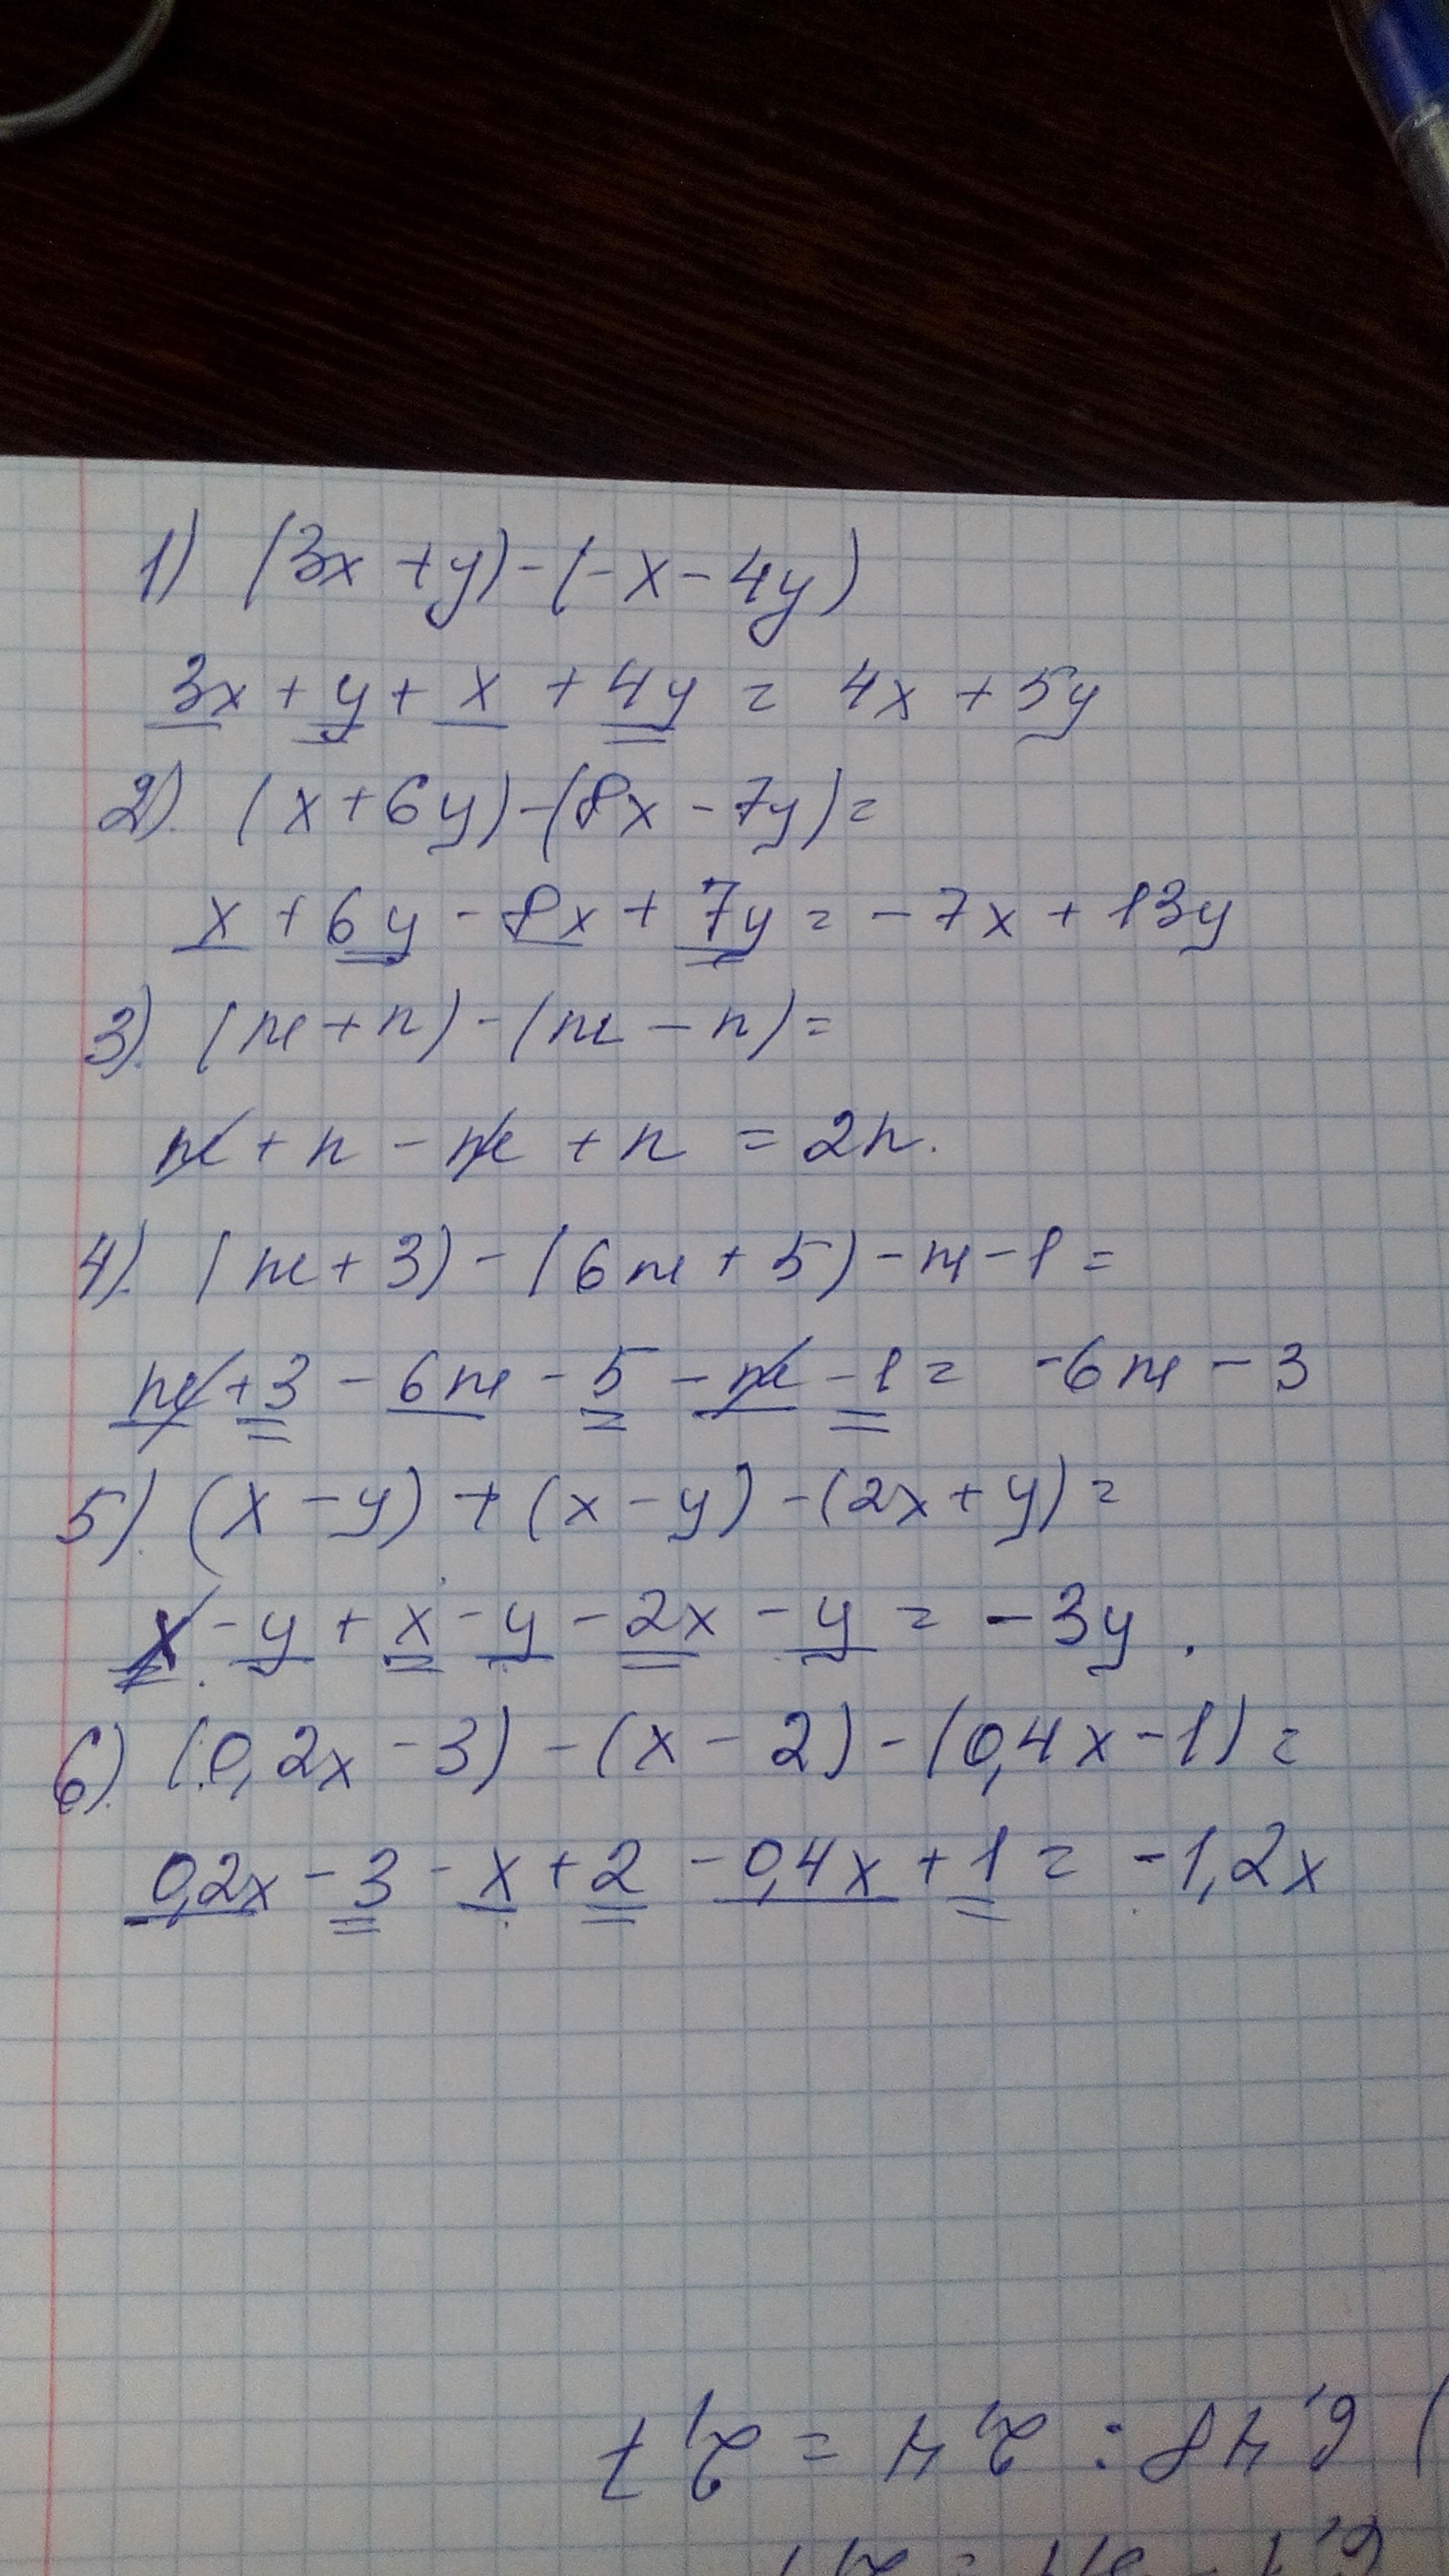 1) (3x + y) - (-x - 4y)
3x + y + x + 4y = 4x + 5y
2). (x + 6y) - (8x - 7y) =
x + 6y - 8x + 7y = -7x + 13y
3). (m + n) - (m - n) =
m + n - m + n = 2n.
4). (m + 3) - (6m + 5) - m - 1 =
m + 3 - 6m - 5 - m - 1 = -6m - 3
5). (x - y) + (x - y) - (2x + y) =
x - y + x - y - 2x - y = -3y.
6). (0,2x - 3) - (x - 2) - (0,4x - 1) =
0,2x - 3 - x + 2 - 0,4x + 1 = -1,2x
) 6,48 : 2,4 = 2,7